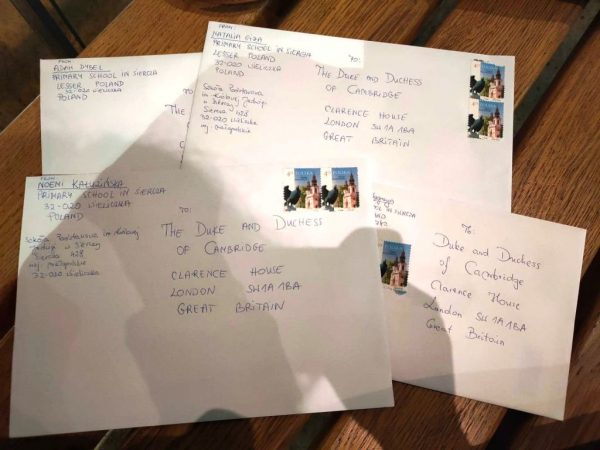 FROM:
ADAM DYBEL
PRIMARY SCHOOL IN SIERCZA
LESSER POLAND
32-020 WIELICZKA
POLAND
TO:
THE
FROM:
NATALIA GIZA
PRIMARY SCHOOL IN SIERCZA
LESSER POLAND
32-020 WIELICZKA
POLAND
Szkoła Podstawowa
im. Królowej Jadwigi
w Sierczy
Siercza 428
32-020 Wieliczka
woj. małopolskie
TO:
THE DUKE AND DUCHESS
OF CAMBRIDGE
CLARENCE HOUSE
LONDON SW1A 1BA
GREAT BRITAIN
FROM:
NOEMI KAŁUZIŃSKA
PRIMARY SCHOOL IN SIERCZA
32-020 WIELICZKA
POLAND
Szkoła Podstawowa im. Królowej
Jadwigi w Sierczy
Siercza 428
woj. małopolskie
32-020 Wieliczka
POLSKA
TO:
THE DUKE AND DUCHESS
OF CAMBRIDGE
CLARENCE HOUSE
LONDON SW1A 1BA
GREAT BRITAIN
To:
Duke and Duchess
of Cambridge
Clarence House
London SW1A 1BA
Great Britain